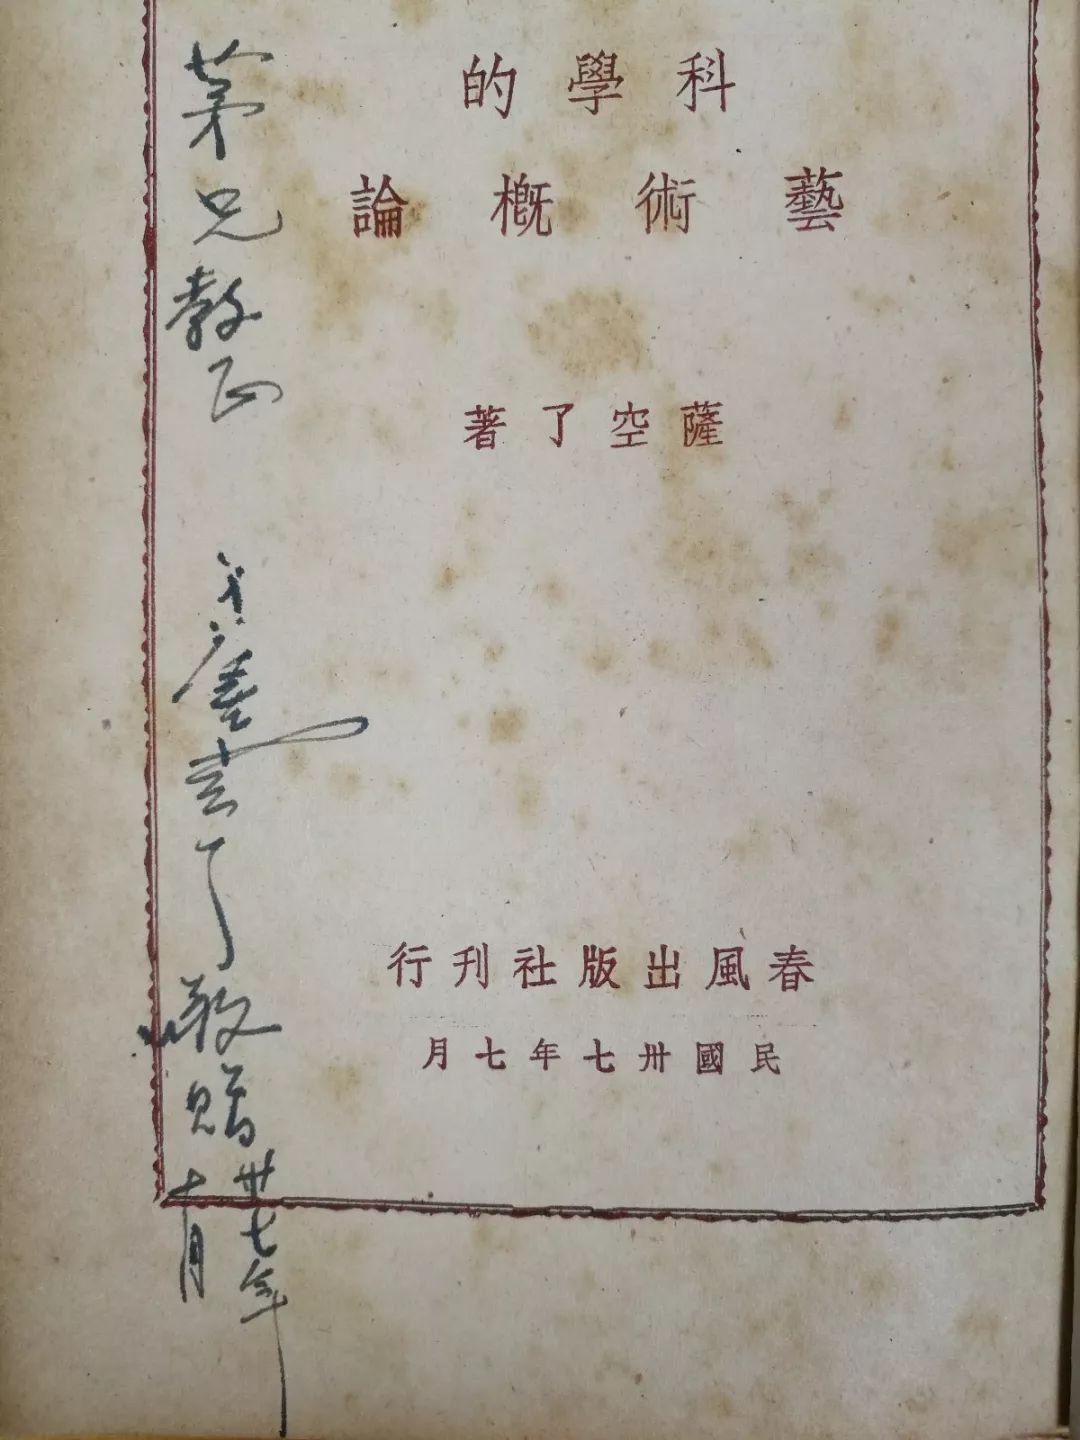 科學的
藝術槪論
薩空了著
春風出版社刊行
民國卅七年七月
茅兄教正
弟薩空了敬贈
卅七年
十月